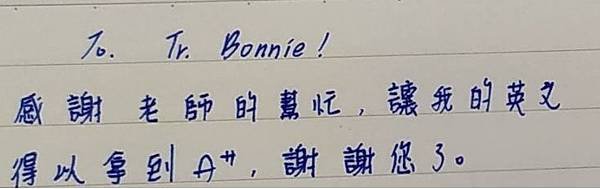 To. Tr. Bonnie!
感謝老師的幫忙，讓我的英文
得以拿到A++，謝謝您了。